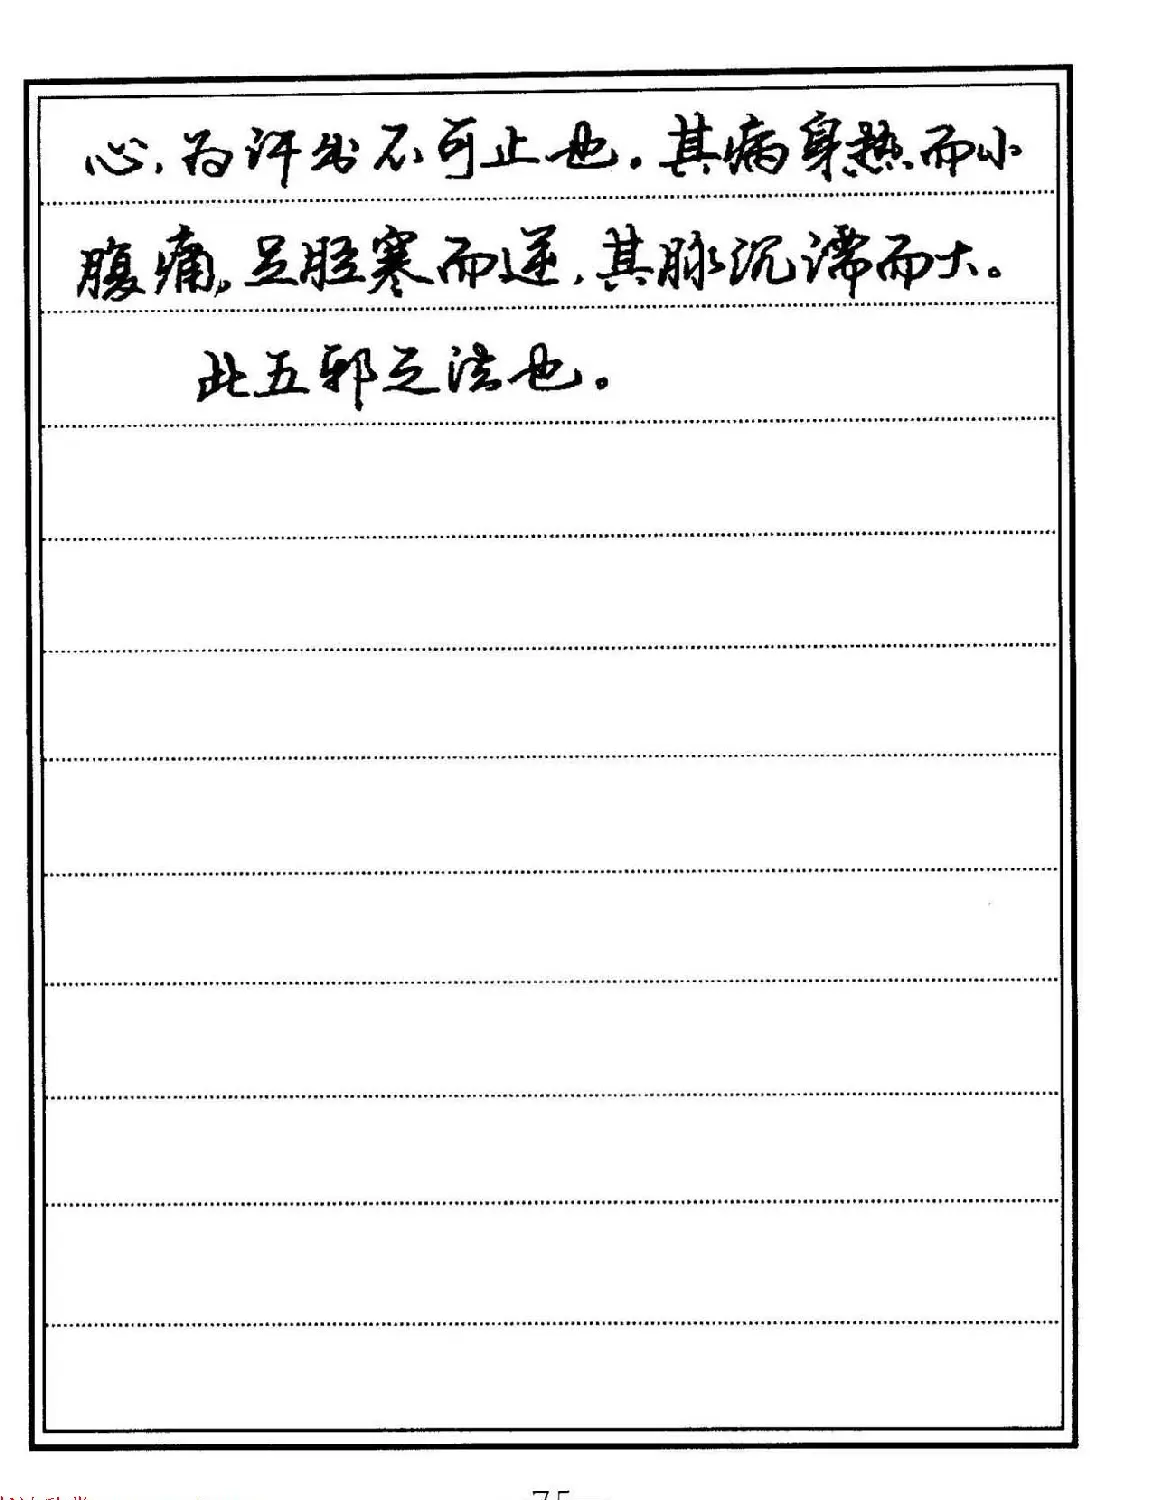 心，为汗出不可止也。其病身热而小
腹痛。足胫寒而逆，其脉沉濡而大。
此五邪之法也。
75